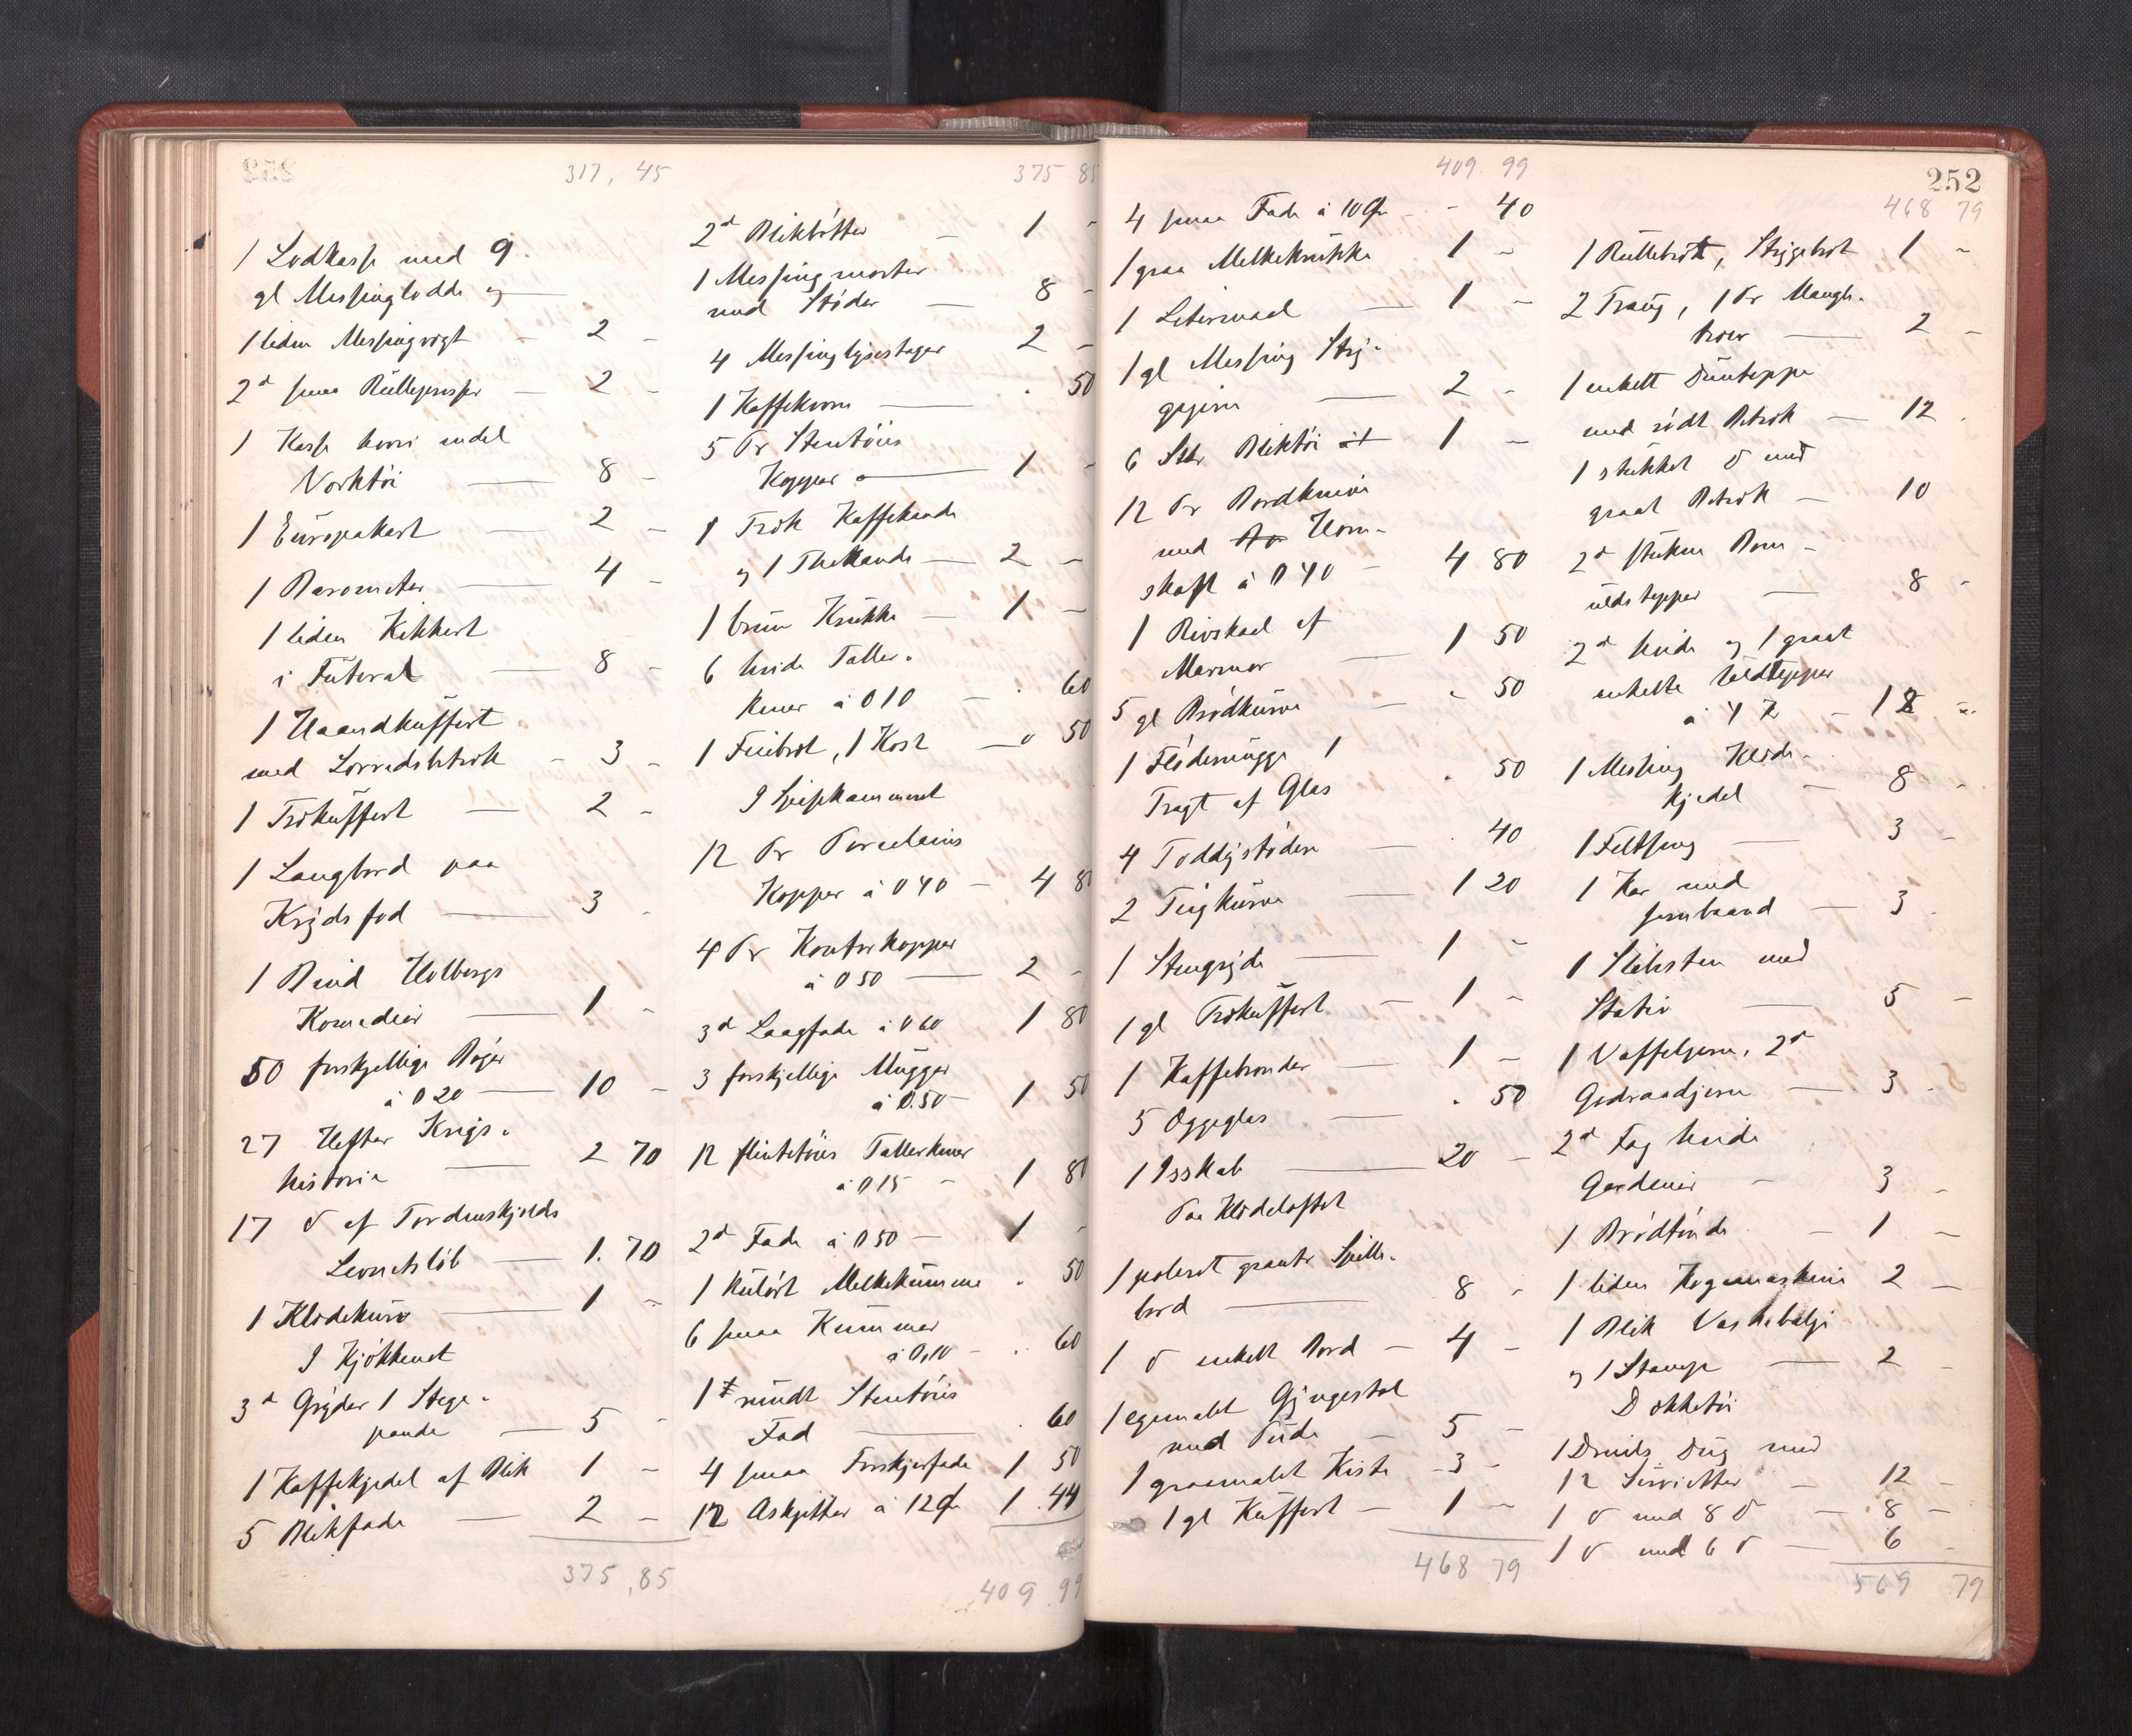 317, 45
1 Lodkasse med 9
gl Messinglodde og
1 liden Messingvigt - 2 -
2d smaa Rullepresser - 2 -
1 Kasse hvori endel
Verktöi — 8 -
1 Europakart — 2 -
1 Barometer — 4 -
1 liden Kikkert
i Futeral — 8 -
1 Haandkuffert
med Lerredsbetræk - 3 -
1 Trækuffert — 2 -
1 Langbord paa
Krydsfod — 3 -
1 Bind Holbergs
Komedier — 1 -
50 forskjellige Bøger
à 0 20 — 10 -
27 Hefter Krigs-
historie — 2 70
17 d af Tordenskjolds
Levnetsløb — 1. 70
1 Klædekurv — 1 -
I Kjökkenet
3d Gryder 1 Stege-
pande — 5 -
1 Kaffekjedel af Blik 1 -
5 Blikfade — 2 -
375,85
375 85
2d Blikbötter — 1 -
1 Messingmorter
med Støder — 8 -
4 Messinglysestager 2 -
1 Kaffekvern — . 50
5 Pr Stentöis
Kopper — 1 -
1 Træk Kaffekande
og 1 Thekande — 2 -
1 brun Krukke — 1 -
6 hvide Taller-
kener à 0 10 — . 60
1 Feiebret, 1 Kost — 50
I Spisekammeret
12 Pr Porcelains
Kopper à 0 40 — 4 80
4 Pr Kontorkopper
à 0 50 — 2 -
3d Laagfade à 0 60 1 80
3 forskjellige Mugger
à 0.50 — 1 50
12 flintetöis Tallerkener
à 0 15 - 1 80
2d Fade à 0 50 — 1 -
1 kulört Melkekumme . 50
6 smaa Kummer
à 0,10 - . 60
1 rundt Stentöis
Fad — . 60
4 smaa Forskjærfade 1 50
12 Askjetter à 12 Øre 1.44
409 99
409 99
4 smaa Fade à 10 Øre - - 40
1 graa Melkekrukke 1 -
1 Litermaal — 1 -
1 gl Messing Stry-
gejern — 2 -
6 Stkr Bliktöi — 1 -
12 Pr Bordknive
med Horn-
skaft à 0 40 - 4 80
1 Rivskaal af
Marmor — 1 50
5 gl Brödkurve - - 50
1 Flödemugge 1
Tragt af Glas . 50
4 Toddystødere — . 40
2 Tingkurve — 1 20
1 Stengryde — 1 -
1 gl Trækuffert — 1 -
1 Kaffebrænder — 1 -
5 Æggeglas — . 50
1 Isskab — 20 -
Paa Klædeloftet
1 poleret grante Spille-
bord — 8 -
1 d enkelt Bord - 4 -
1 egemalet Gyngestol
med Pude - 5 -
1 graamalet Kiste - 3 -
1 gl Kuffert — 1 -
468 79
252
468 79
1 Rullebræt, Strygebræt 1 -
2 Traug, 1 Pr Mangle-
træer — 2 -
1 enkelt Duntæppe
med rödt Betræk — 12 -
1 stukket d med
graat Betræk — 10
2d stukne Bom-
uldstepper — 8 -
2d hvide og 1 graat
enkelte Uldtepper
à 4 - 12 -
1 Messing Klæde-
kjedel — 8 -
1 Feltseng — 3 -
1 Kar med
Jernbaand — 3 -
1 Slibesten med
Stativ — 5 -
1 Vaffeljern, 2d
Godraadjern — 3 -
2d Fag hvide
Gardiner - 3 -
1 Brödtinde — 1 -
1 liden Kogemaskine 2 -
1 Blik Vaskebalje
og 1 Stampe — 2 -
Dækketöi
1 Dreils Dug med
12 Servietter - 12 -
1 d med 8 d — 8 -
1 d med 6 d — 6 -
569 79